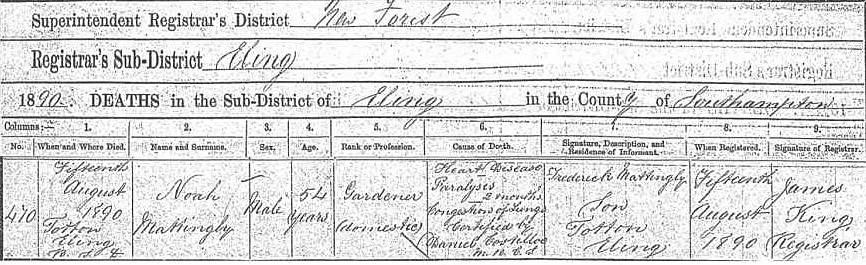 Superintendent Registrar's District New Forest
Registrar's Sub-District Eling
1890. DEATHS in the Sub-District of Eling in the County of Southampton
Columns:— 1. 2. 3. 4. 5. 6. 7. 8. 9.
No. When and Where Died. Name and Surname. Sex. Age. Rank or Profession. Cause of Death. Signature, Description, and Residence of Informant. When Registered. Signature of Registrar.
470
Fifteenth
August
1890
Totton
Eling
Noah
Mattingly
Male
54
years
Gardener
(domestic)
Heart Disease
Paralysis
2 months
Congestion of Lungs
Certified by
Daniel Costilloe
M.R.C.S
Frederick Mattingly
Son
Totton
Eling
Fifteenth
August
1890
James
King
Registrar